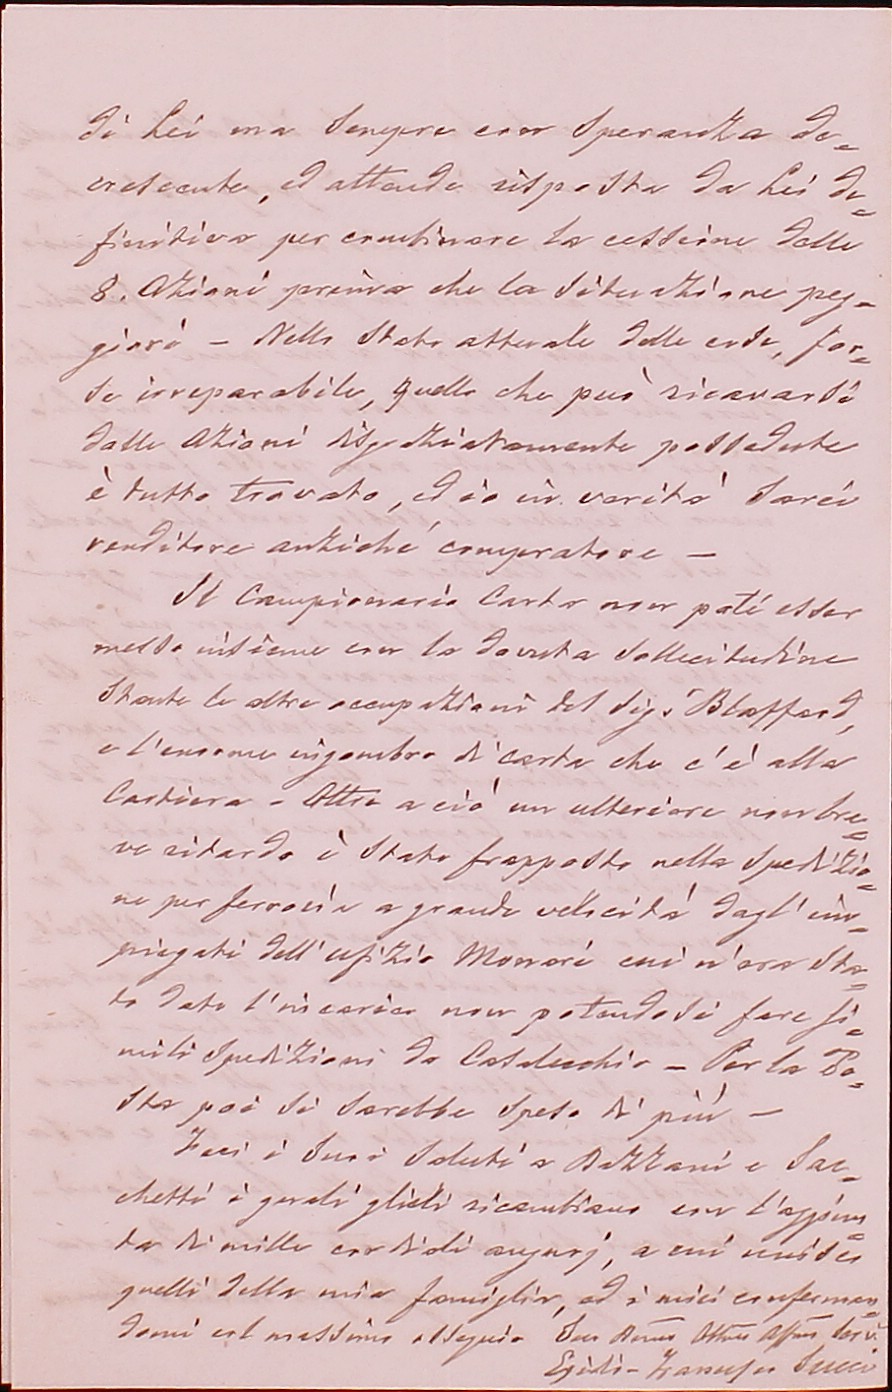 di Lei ma sempre con speranza de=
crescente, ed attende risposta da Lei de=
finitiva per combinare la cessione delle
8. Azioni prima che la situazione peg=
giori – Nello stato attuale delle cose, for=
se irreparabile, quello che può ricavarsi
dalle Azioni disgraziatamente possedute
è tutto trovato, ed io in verità sarei
venditore anziché compratore –
Il Campionario Carta non poté esser
messo insieme con la dovuta sollecitudine
stante le altre occupazioni del Sig.r Blafford,
e l'enorme ingombro di carta che c'è alla
Cartiera – Oltre a ciò un ulteriore non bre=
ve ritardo è stato frapposto nella spedizio=
ne per ferrovia a grande velocità dagl'im=
piegati dell'ufizio Monari cui n'era sta=
to dato l'incarico non potendosi fare si=
mili spedizioni da Casalecchio – Per la Po=
sta poi si sarebbe speso di più –
Feci i suoi saluti a Bizzani e Sac=
chetti i quali glieli ricambiano con l'aggiun=
ta di mille cordiali augurj, a cui unisco
quelli della mia famiglia, ed i miei conferman=
domi col massimo ossequio Suo